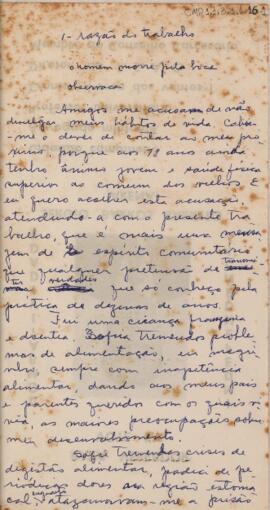 CMP1.2.3.1.6 16
1- razão do trabalho
o homem morre pela boca
observação
Amigos me acusam de não
divulgar meus hábitos de vida. Cabe-
me o dever de contar ao meu pró
ximo, porque aos 78 anos ainda
tenho ânimo jovem e saúde física
superior ao comum dos velhos E
eu quero acolher esta acusação
atendendo-a com o presente tra
balho, que é mais uma mensa
gem de espírito comunitário
que qualquer pretensão de transmi
tir novidades que só conheço pela
prática de dezenas de anos.
Fui uma criança franzina
e doentia. Sofria tremendos proble
mas de alimentação, era magri
nho, sempre com inapetência
alimentar, dando aos meus pais
e parentes queridos com os quais vi
via, as maiores preocupações sobre
meu desenvolvimento.
Sofri tremendas crises de
digestão alimentar, padeci de pe
riódicas dores na região estoma
cal. atazanavam-me a prisão